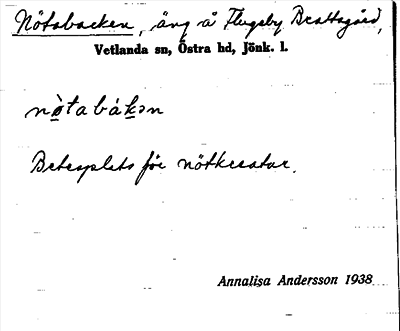 Nötabacken, äng å Flugeby Brattsgård,
Vetlanda sn, Östra hd, Jönk. l.
nò̱tabák̲ən
Betesplats för nötkreatur.
Annalisa Andersson 1938